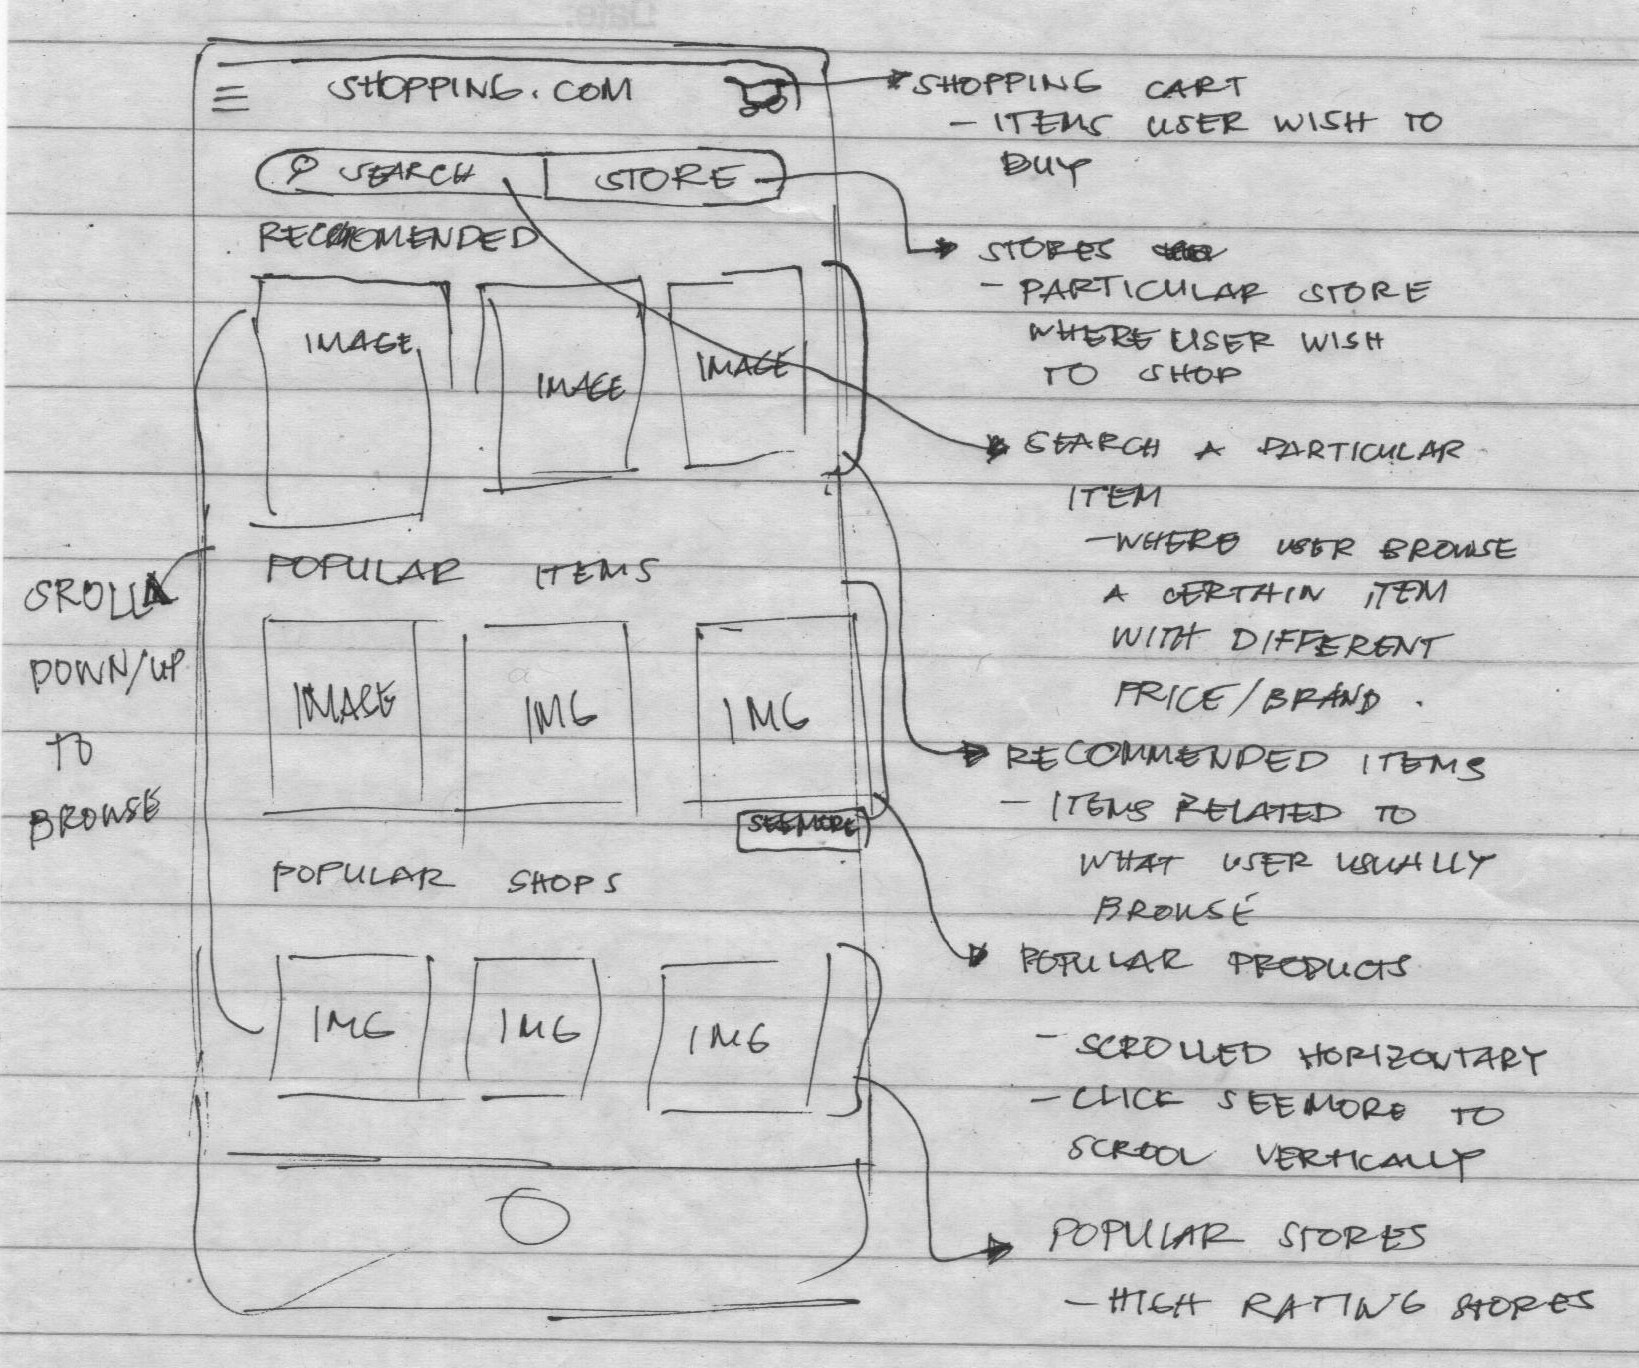 SHOPPING.COM
SEARCH
STORE
RECOMENDED
IMAGE
IMAGE
IMAGE
POPULAR ITEMS
IMAGE
IMG
IMG
SEEMORE
POPULAR SHOPS
IMG
IMG
IMG
SROLL
DOWN/UP
TO
BROWSE
SHOPPING CART
- ITEMS USER WISH TO
BUY
STORES
- PARTICULAR STORE
WHERE USER WISH
TO SHOP
SEARCH A PARTICULAR
ITEM
- WHERE USER BROWSE
A CERTAIN ITEM
WITH DIFFERENT
PRICE/BRAND.
RECOMMENDED ITEMS
- ITEMS RELATED TO
WHAT USER USUALLY
BROWSE
POPULAR PRODUCTS
- SCROLLED HORIZONTARY
- CLICK SEEMORE TO
SCROOL VERTICALLY
POPULAR STORES
- HIGH RATING STORES
Date: